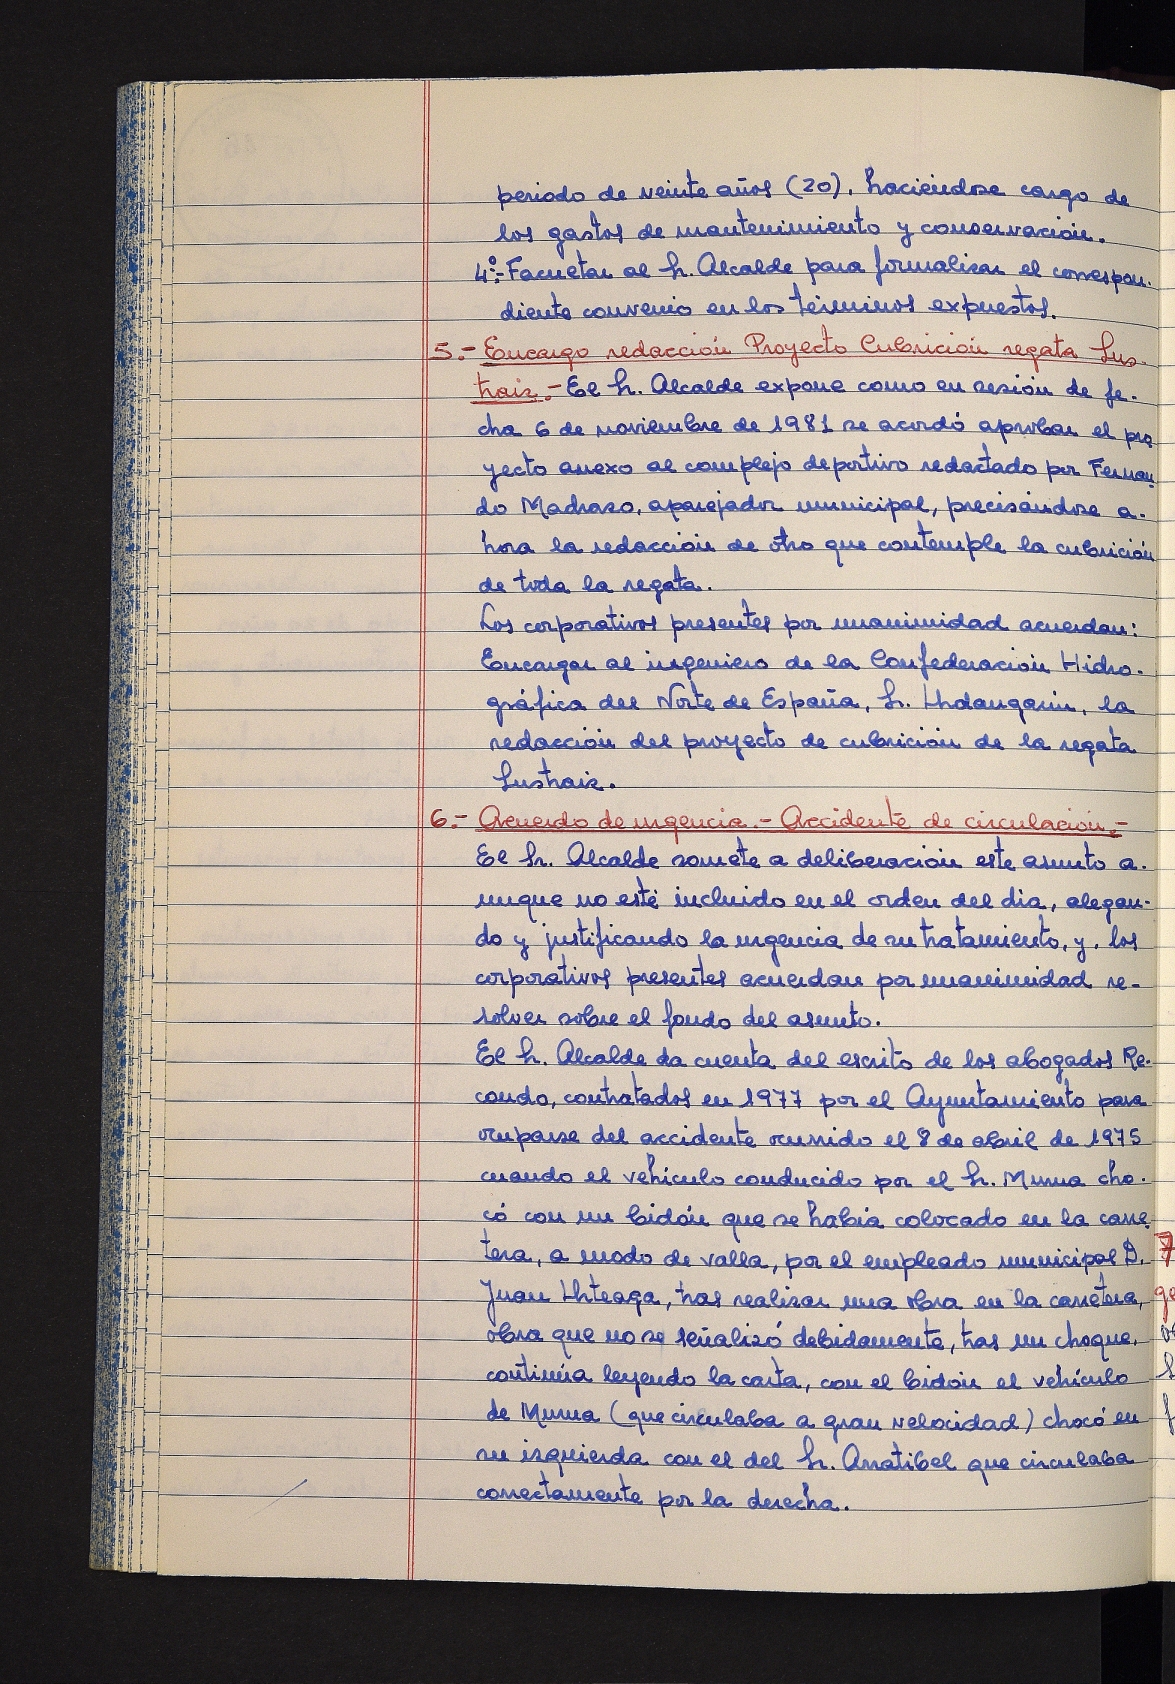 periodo de veinte años (20), haciéndose cargo de
los gastos de mantenimiento y conservación.
4º.- Facultar al Sr. Alcalde para formalizar el correspon-
diente convenio en los términos expuestos.
5.- Encargo redacción Proyecto Cubrición regata Sus-
traiz.- El Sr. Alcalde expone como en sesión de fe-
cha 6 de noviembre de 1981 se acordó aprobar el pro
yecto anexo al complejo deportivo redactado por Fernan
do Madrazo, aparejador municipal, precisándose a-
hora la redacción de otro que contemple la cubrición
de toda la regata.
Los corporativos presentes por unanimidad acuerdan:
Encargar al ingeniero de la Confederación Hidro-
gráfica del Norte de España, Sr. Urdangarin, la
redacción del proyecto de cubrición de la regata
Sustraiz.
6.- Acuerdo de urgencia.- Accidente de circulación.-
El Sr. Alcalde somete a deliberación este asunto a-
unque no esté incluido en el orden del dia, alegan-
do y justificando la urgencia de su tratamiento, y, los
corporativos presentes acuerdan por unanimidad re-
solver sobre el fondo del asunto.
El Sr. Alcalde da cuenta del escrito de los abogados Re-
condo, contratados en 1977 por el Ayuntamiento para
ocuparse del accidente ocurrido el 8 de abril de 1975
cuando el vehículo conducido por el Sr. Murua cho-
có con un bidón que se habia colocado en la carre
tera, a modo de valla, por el empleado municipal D.
Juan Urteaga, tras realizar una obra en la carretera,
obra que no se señalizó debidamente, tras un choque,
continúa leyendo la carta, con el bidón el vehículo
de Murua (que circulaba a gran velocidad) chocó en
su izquierda con el del Sr. Arratibel que circulaba
correctamente por la derecha.
7